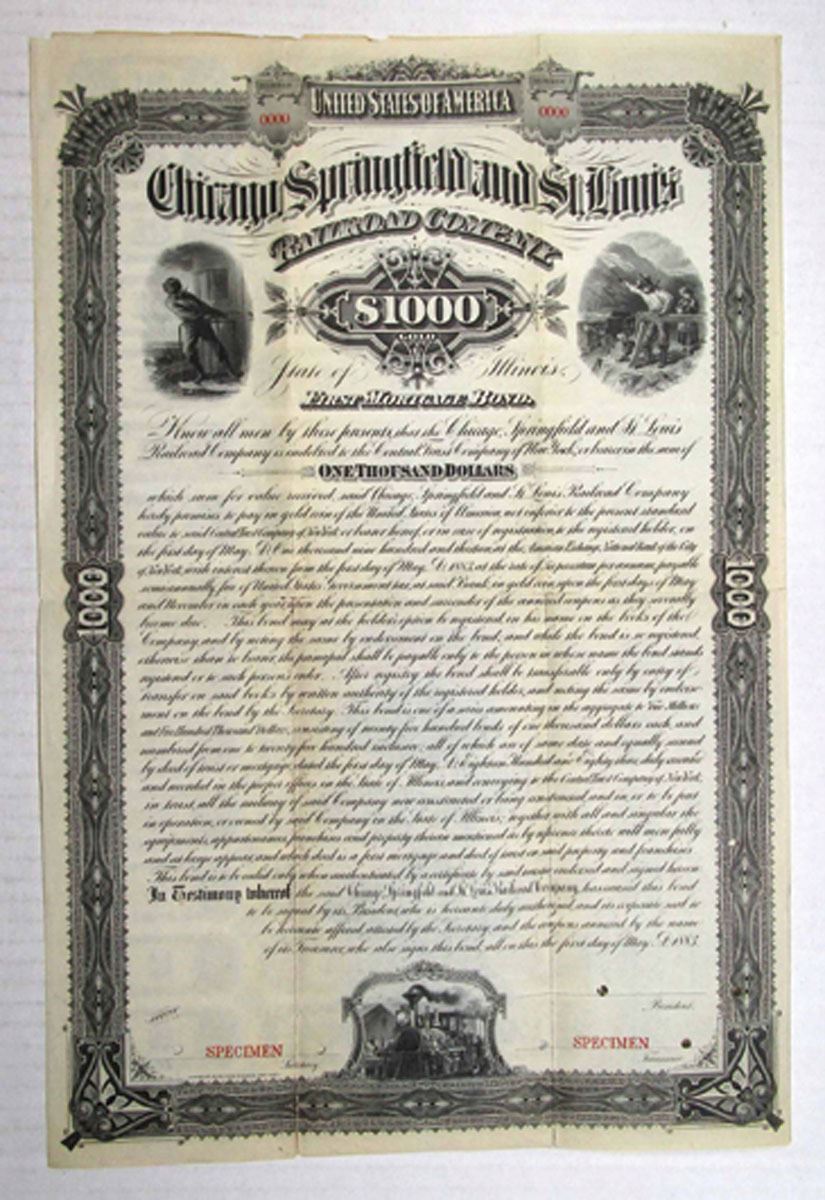 UNITED STATES OF AMERICA
0000
0000
Chicago Springfield and St. Louis
RAILROAD COMPANY
$1000
GOLD
State of Illinois
FIRST MORTGAGE BOND.
Know all men by these presents, that the Chicago, Springfield and St. Louis
Railroad Company is indebted to the Central Trust Company of New York, or bearer in the sum of
ONE THOUSAND DOLLARS
which sum for value received, said Chicago, Springfield and St. Louis Railroad Company
hereby promises to pay in gold coin of the United States of America, not inferior to the present standard
value to said Central Trust Company of New York or bearer hereof, or in case of registration, to the registered holder, on
the first day of May A.D. One thousand nine hundred and thirteen at the American Exchange National Bank of the City
of New York, with interest thereon from the first day of May A.D. 1883, at the rate of six per centum per annum, payable
semi-annually, free of United States Government tax, at said Bank, in gold coin, upon the first days of May
and November in each year, upon the presentation and surrender of the annexed coupons as they severally
become due. This bond may at the holder's option be registered in his name on the books of the
Company, and by noting the same by endorsement on the bond, and while the bond is so registered,
otherwise than to bearer, the principal shall be payable only to the person in whose name the bond stands
registered or to such person's order. After registry the bond shall be transferable only by entry of
transfer on said books by written authority of the registered holder, and noting the same by endorse-
ment on the bond by the Secretary. This bond is one of a series amounting in the aggregate to Two Millions
and Five Hundred Thousand Dollars, consisting of twenty five hundred bonds of one thousand dollars each, and
numbered from one to twenty five hundred inclusive, all of which are of same date and equally secured
by deed of trust or mortgage dated the first day of May A.D. Eighteen Hundred and Eighty three, duly executed
and recorded in the proper offices in the State of Illinois, and conveying to the Central Trust Company of New York,
in trust, all the railway of said Company now constructed or being constructed, and in or to be put
in operation, or owned by said Company in the State of Illinois, together with all and singular the
equipments, appurtenances, franchises and property therein mentioned as by reference thereto will more fully
and at large appear, and which deed is a first mortgage and deed of trust on said property and franchises.
This bond is to be valid only when authenticated by a certificate by said trustee endorsed and signed hereon
In Testimony whereof the said Chicago, Springfield and St. Louis Railroad Company, has caused this bond
to be signed by its President, who is hereunto duly authorized, and its corporate seal to
be hereunto affixed, attested by the Secretary, and the coupons annexed by the name
of its Treasurer, who also signs this bond, all on this the first day of May A.D. 1883.
President.
SPECIMEN
Secretary
SPECIMEN
Treasurer
1000
1000